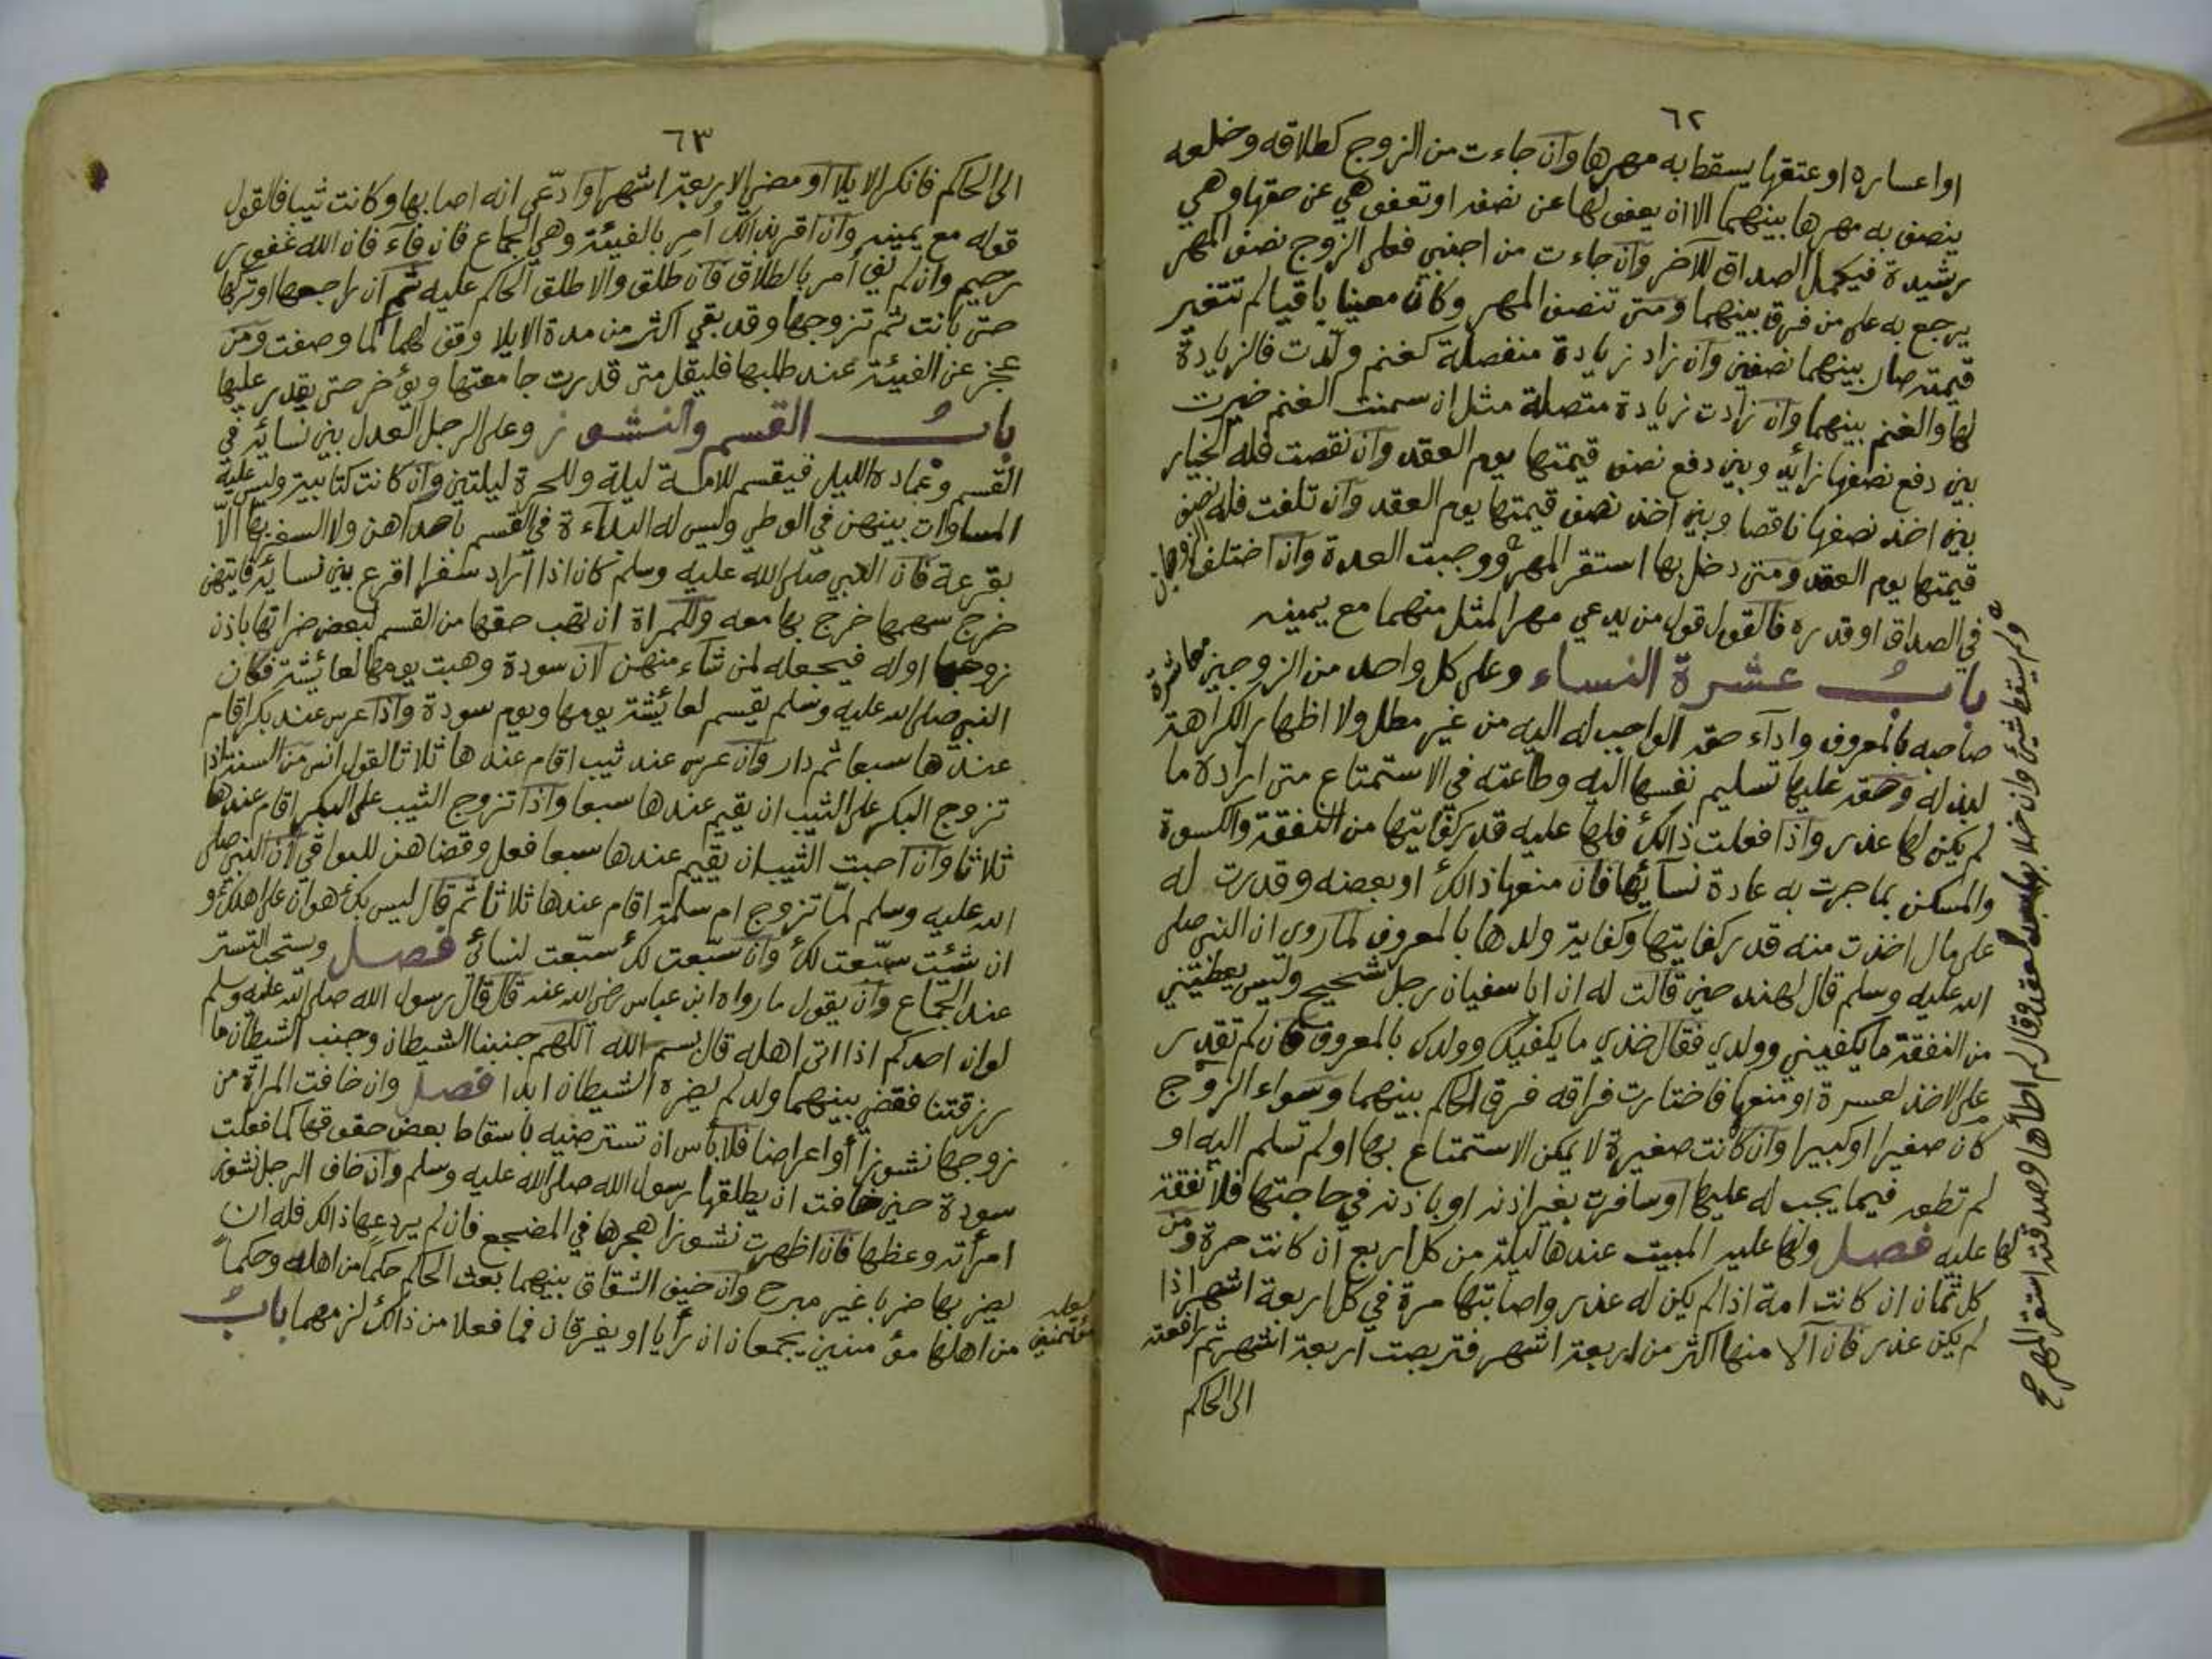 ٦٢
او اعساره او عتقها يسقط به مهرها وان جاءت من الزوج كطلاقه وخلعه
ينصف به مهرها بينهما الا ان يعفو لها عن نصفه او تعفو هي عن حقها وهي
رشيدة فيكمل الصداق للآخر وان جاءت من اجنبي فعلى الزوج نصف المهر
يرجع به على من فرق بينهما ومتى تنصف المهر وكان معينا باقيا لم تتغير
قيمته صار بينهما نصفين وان زاد زيادة منفصلة كغنم ولدت فالزيادة
لها والغنم بينهما وان زادت زيادة متصلة مثل ان سمنت الغنم خيرت
بين دفع نصفها زائد وبين دفع نصف قيمتها يوم العقد وان نقصت فله الخيار
بين اخذ نصفها ناقصا وبين اخذ نصف قيمتها يوم العقد وان تلفت فله نصف
قيمتها يوم العقد ومتى دخل بها استقر المهر ووجبت العدة وان اختلف الزوجان
في الصداق او قدره فالقول قول من يدعي مهر المثل منهما مع يمينه
باب عشرة النساء وعلى كل واحد من الزوجين معاشرة
صاحبه بالمعروف واداء حقه الواجب له اليه من غير مطل ولا اظهار الكراهة
لبذله وحقه عليها تسليم نفسها اليه وطاعته في الاستمتاع متى اراده ما
لم يكن لها عذر واذا فعلت ذالك فلها عليه قدر كفايتها من النفقة والكسوة
والمسكن بما جرت به عادة نسائها فان منعها ذالك او بعضه وقدرت له
على مال اخذت منه قدر كفايتها وكفاية ولدها بالمعروف لما روى ان النبي صلى
الله عليه وسلم قال لهند حين قالت له ان ابا سفيان رجل شحيح وليس يعطيني
من النفقة ما يكفيني وولدي فقال خذي ما يكفيك وولدك بالمعروف فان لم تقدر
على الاخذ لعسرة او منعها فاختارت فراقه فرق الحاكم بينهما وسواء الزوج
كان صغيرا او كبيرا وان كانت صغيرة لا يمكن الاستمتاع بها او لم تسلم اليه او
لم تطعه فيما يجب له عليها او سافرت بغير اذنه او باذنه في حاجتها فلا نفقة
لها عليه فصل ولها عليه المبيت عندها ليلة من كل اربع ان كانت حرة ومن
كل ثمان ان كانت امة اذا لم يكن له عذر واصابتها مرة في كل اربعة اشهر اذا
لم يكن عذر فان آلا منها اكثر من اربعة اشهر فتربصت اربعة اشهر ثم رافعته
الى الحاكم
ولم يسقط شيئ وان خلا بها بعد العقد وقال لم اطأها وصدقته استقر المهر صح
٦٣
الى الحاكم فانكر الايلا او مضي الاربعة اشهر او ادّعى انه اصابها وكانت ثيبا فالقول
قوله مع يمينه وان اقر بذالك امر بالفيئة وهي الجماع فان فآء فان الله غفور
رحيم وان لم يفي امر بالطلاق فان طلق والا طلق الحاكم عليه ثم ان راجعها او تركها
حتى بانت ثم تزوجها وقد بقي اكثر من مدة الايلا وقف لهما لما وصفت ومن
عجز عن الفيئة عند طلبها فليقل متى قدرت جامعتها ويؤخر حتى يقدر عليها
باب القسم والنشوز وعلى الرجل العدل بين نسائه في
القسم وعماده الليل فيقسم للامة ليلة وللحرة ليلتين وان كانت كتابية وليس عليه
المساوات بينهن في الوطي وليس له البداءة في القسم باحداهن ولا السفر بها الا
بقرعة فان النبي صلى الله عليه وسلم كان اذا اراد سفرا اقرع بين نسائه فايتهن
خرج سهمها خرج بها معه وللمراة ان تهب حقها من القسم لبعض ضراتها باذن
زوجها او له فيجعله لمن شاء منهن لان سودة وهبت يومها لعائشة فكان
النبي صلى الله عليه وسلم يقسم لعائشة يومها ويوم سودة واذا عرس عند بكر اقام
عندها سبعا ثم دار وان عرس عند ثيب اقام عندها ثلاثا لقول انس من السنة اذا
تزوج البكر على الثيب ان يقيم عندها سبعا واذا تزوج الثيب على البكر اقام عندها
ثلاثا وان احبت الثيب ان يقيم عندها سبعا فعل وقضاهن للبواقي لان النبي صلى
الله عليه وسلم لمّا تزوج ام سلمة اقام عندها ثلاثا ثم قال ليس بك هوان على اهلك و
ان شئت سبّعت لك وان سبّعت لك سبّعت لنسائي فصل ويستحب التستر
عند الجماع وان يقول ما رواه ابن عباس رضي الله عنه قال قال رسول الله صلى الله عليه وسلم
لو ان احدكم اذا اتى اهله قال بسم الله اللهم جنبنا الشيطان وجنب الشيطان ما
رزقتنا فقضي بينهما ولد لم يضره الشيطان ابدا فصل وان خافت المراة من
زوجها نشوزا او اعراضا فلا بأس ان تسترضيه باسقاط بعض حقوقها كما فعلت
سودة حين خافت ان يطلقها رسول الله صلى الله عليه وسلم وان خاف الرجل نشوز
امرأته وعظها فان اظهرت نشوزا هجرها في المضجع فان لم يردعها ذالك فله ان
يضربها ضربا غير مبرح وان خيف الشقاق بينهما بعث الحاكم حكما من اهله وحكما
من اهلها مؤمنين يجمعان ان رأيا او يفرقان فما فعلا من ذالك لزمهما باب
لعله
مؤتمنين